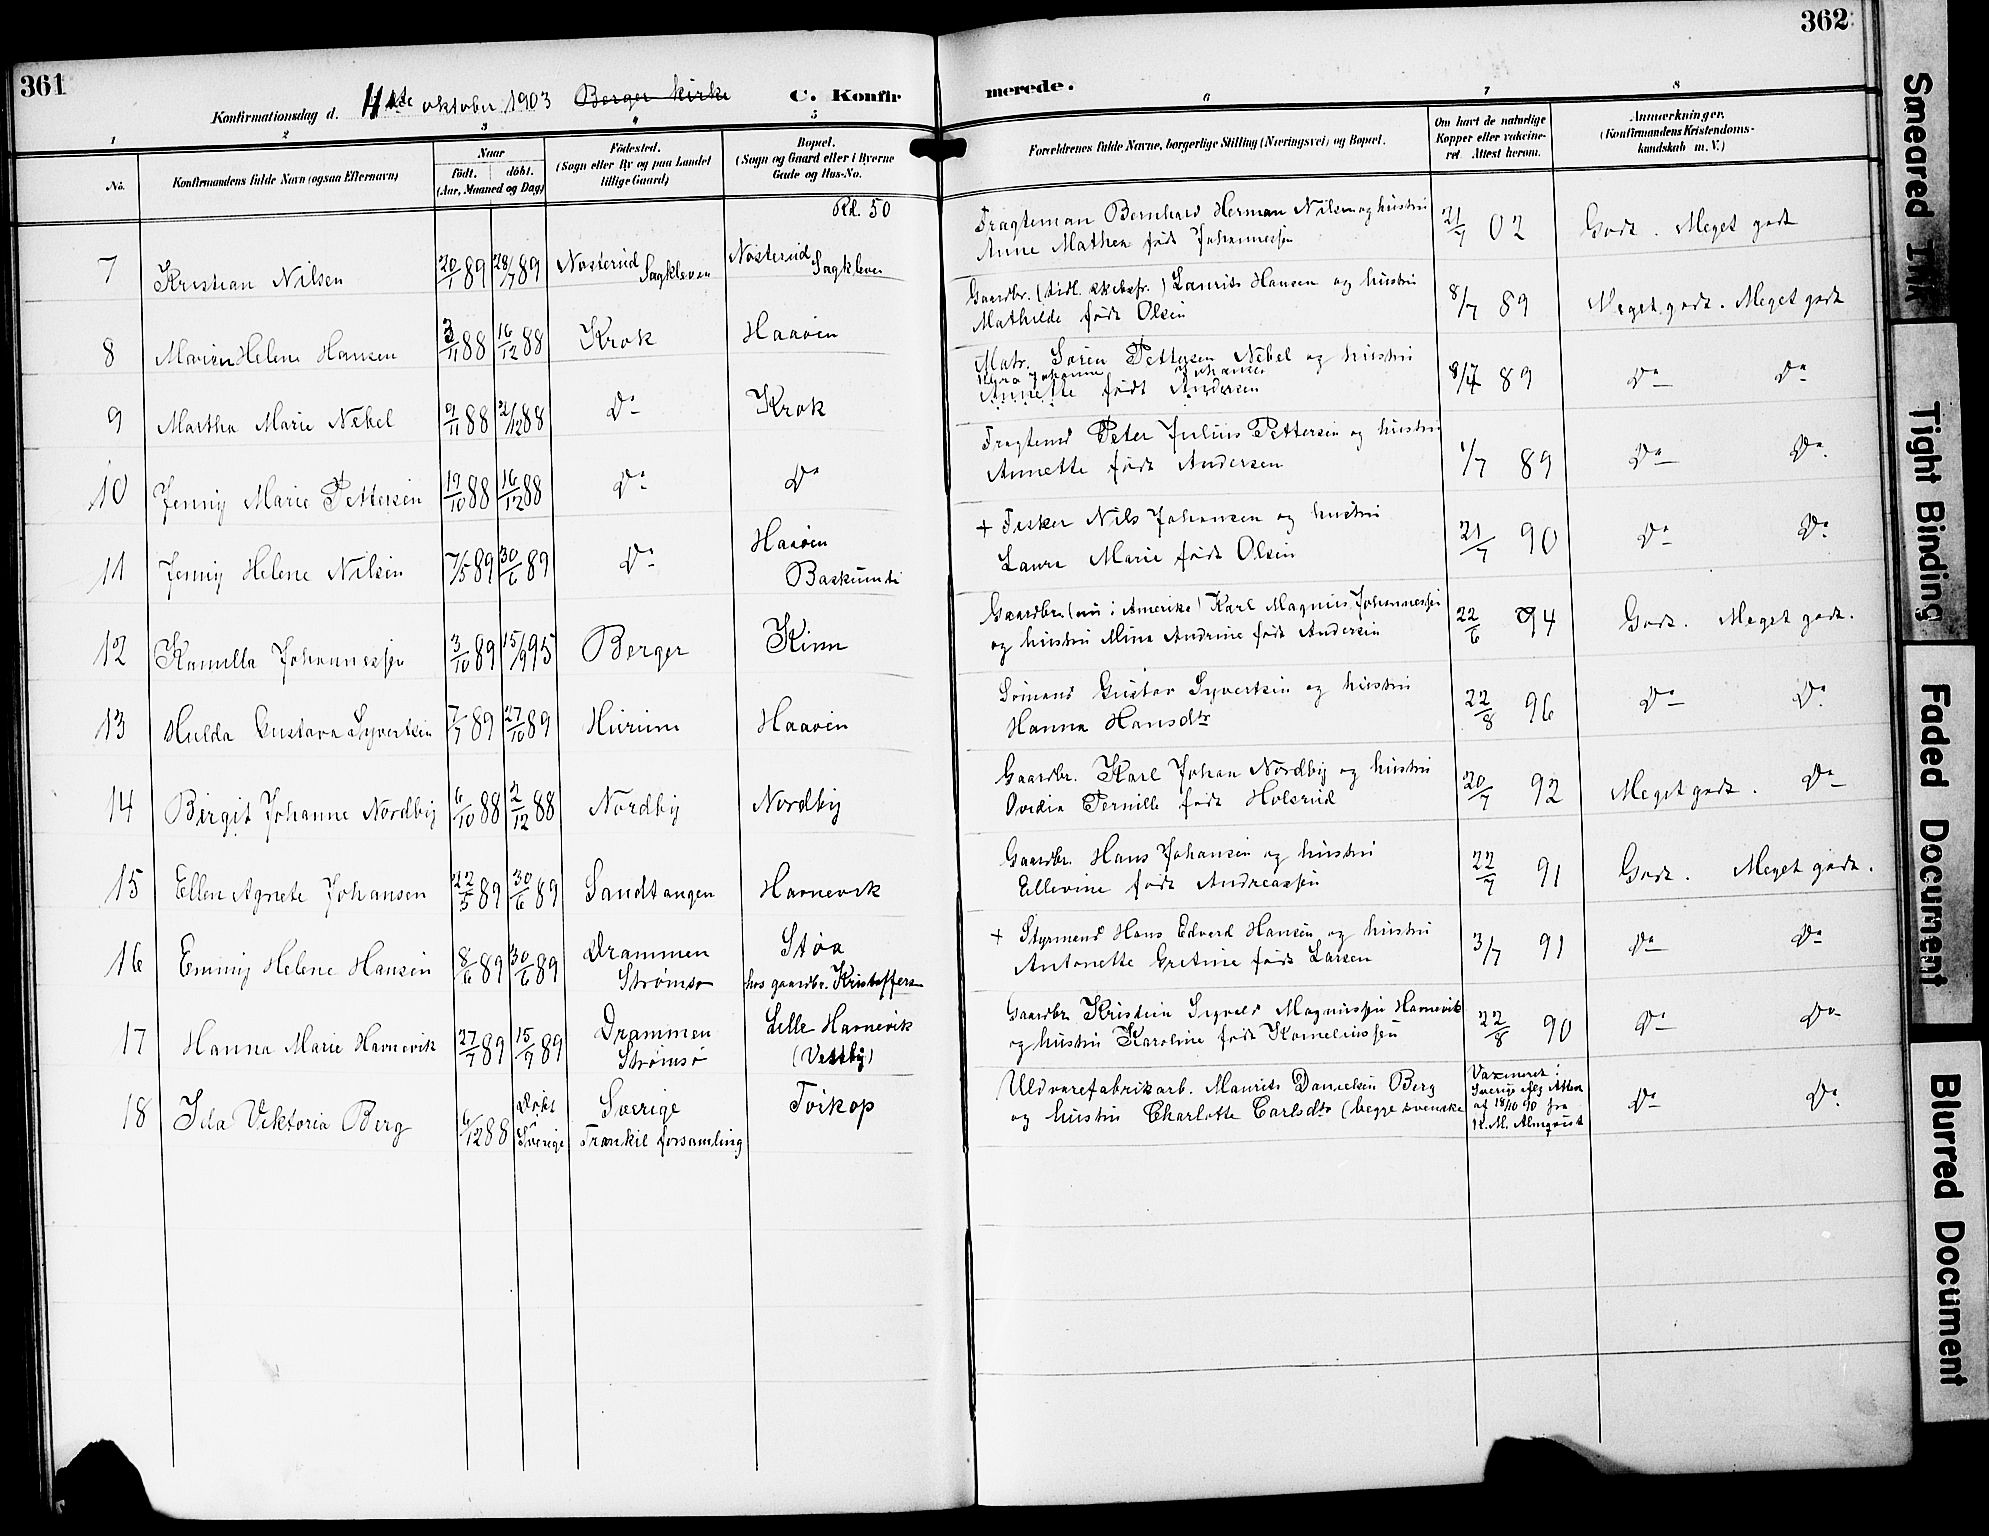 361
362
Konfirmationsdag d. 11te oktober 1903 Berger kirke
C. Konfir
merede.
1 2 3 4 5 6 7 8
No.
Konfirmandens fulde Navn (ogsaa Efternavn)
Naar
födt. döbt.
(Aar, Maaned og Dag)
Födested.
(Sogn eller By og paa Landet
tillige Gaard)
Bopæl.
(Sogn og Gaard eller i Byerne
Gade og Hus-No.
Forældrenes fulde Navne, borgerlige Stilling (Næringsvei) og Bopæl.
Om havt de naturlige
Kopper eller vakcine-
ret Attest herom.
Anmærkninger.
(Konfirmandens Kristendoms-
kundskab m. V.)
Rd. 50
7 Kristian Nilsen 20/1 89 28/7 89 Nosterud Sagkleven Nosterud Sagkleven
Fragteman Bernhard Herman Nilsen og hustru
Anne Mathea født Johannessen
21/7 02 Godt. Meget godt
8 Marien Helene Hansen 3/11 88 16/12 88 Krok Haaøen
Gaardbr. (tidl. skibsfr.) Laurits Hansen og hustru
Mathilde født Olsen
8/7 89 Meget godt. Meget godt
9 Martha Marie Nebel 9/11 88 2/12 88 Do Krok
Matr. Søren Pettersen Nebel og hustru
Johanne Johansen
Annette født Andersen
8/7 89 Do Do
10 Jenny Marie Pettersen 19/10 88 16/12 88 Do Do
Fragtemd Peter Julius Pettersen og hustru
Annette født Andersen
1/7 89 Do Do
11 Jenny Helene Nilsen 7/5 89 30/6 89 Do Haaøen
Baskumti
+ Fisker Nils Johansen og hustru
Laura Marie født Olsen
21/7 90 Do Do
12 Kamilla Johannessen 3/10 89 15/9 95 Berger Kinn
Gaardbr. (nu i Amerika) Karl Magnus Johannessen
og hustru Mina Andrine født Andersen
22/6 94 Godt. Meget godt.
13 Hulda Gustava Syvertsen 7/7 89 27/10 89 Hurum Haaøen
Sømand Gustav Syvertsen og hustru
Hanna Hansdtr
22/8 96 Do Do
14 Birgit Johanne Nordby 6/10 88 2/12 88 Nordby Nordby
Gaardbr. Karl Johan Nordby og hustru
Ovedia Pernille født Holsrud
20/7 92 Meget godt. Do
15 Ellen Agnete Johansen 22/5 89 30/6 89 Sandtangen Havnevik
Gaardbr. Hans Johansen og hustru
Ellevine født Andreassen
22/7 91 Godt. Meget godt.
16 Emmy Helene Hansen 8/6 89 30/6 89 Drammen
Strømsø
Støa
hos gaardbr. Kristoffers
+ Styrmand Hans Edvard Hansen og hustru
Antonette Gretine født Larsen
3/7 91 Do Do
17 Hanna Marie Havnevik 27/7 89 15/9 89 Drammen
Strømsø
Lille Havnevik
(Vestby)
Gaardbr. Kristian Sigvald Magnussen Havnevik
og hustru Karoline født Korneliussen
22/8 90 Do Do
18 Ida Viktoria Berg 6/12 88 Døbt
Sverige
Sverige
Trankil forsamling
Tørkop
Uldvarefabrikarb. Maurits Danielsen Berg
og hustru Charlotte Carlsdtr (begge svenske
Vaxineret i
Sverige flg. Attest
af 18/10 90 fra
K. M. Almqvist
Do Do
Smeared Ink
Tight Binding
Faded Document
Blurred Document